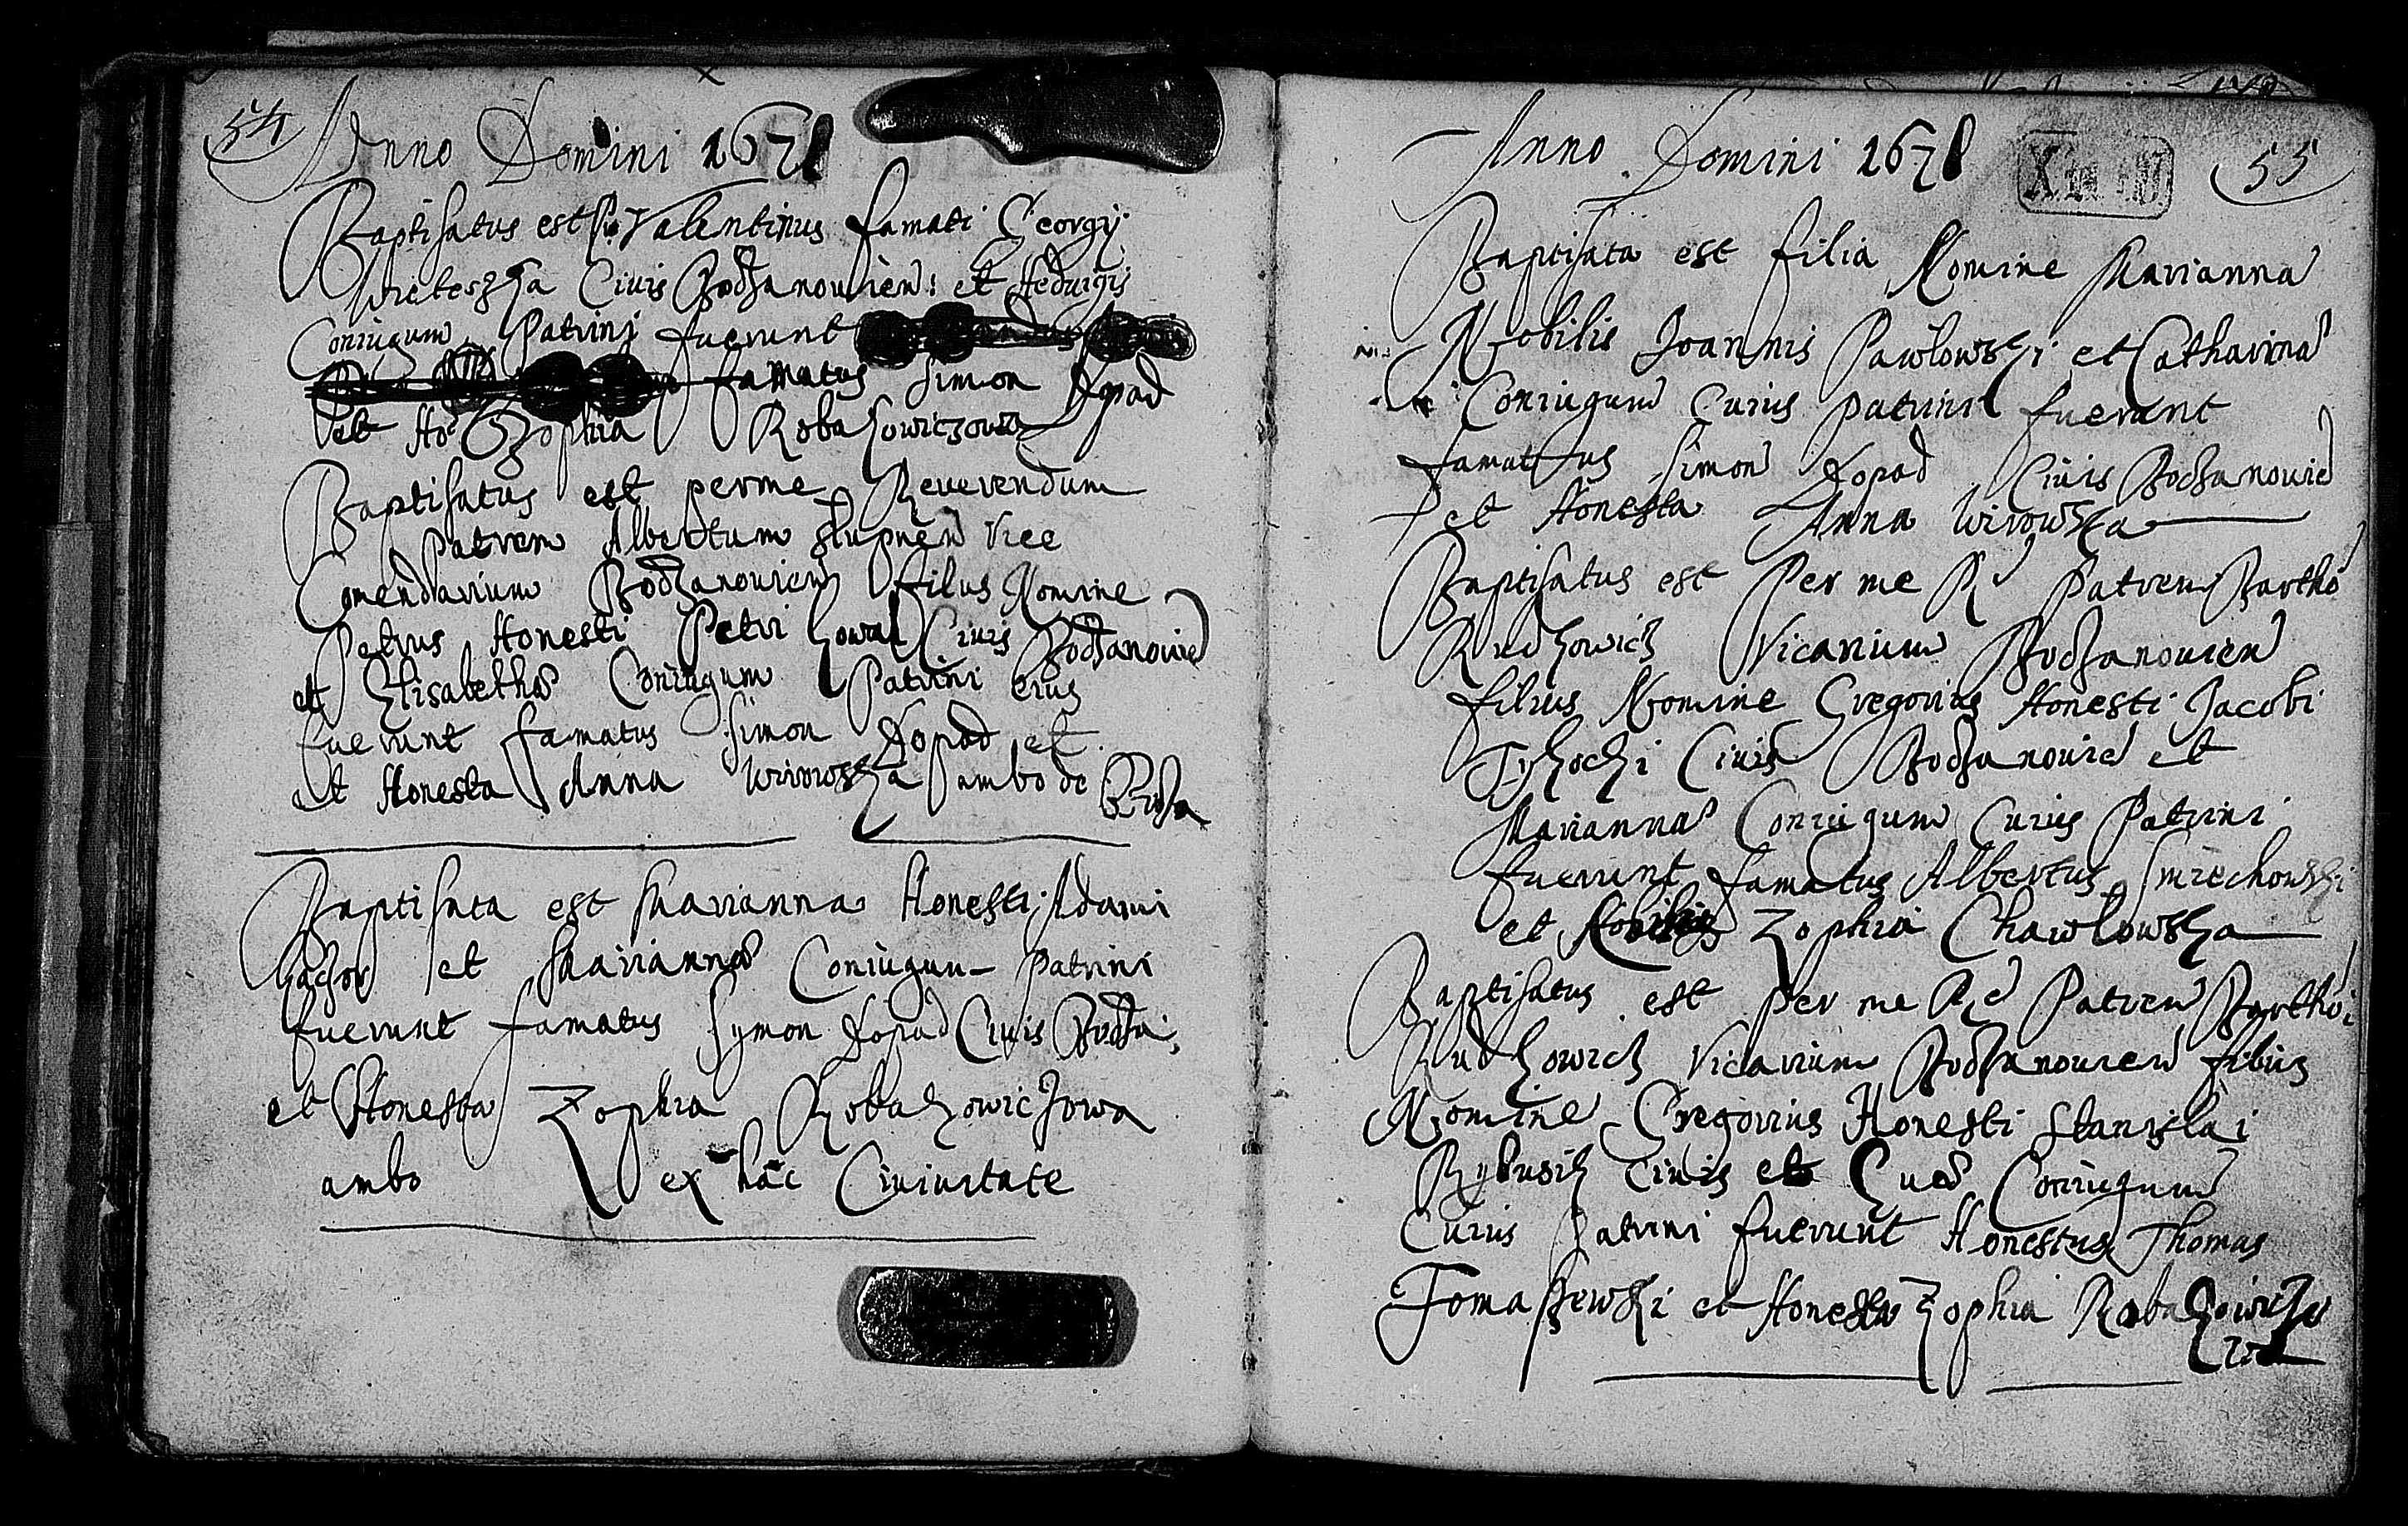 54
Anno Domini 1678
Baptisatus est Valentinus famati Georgij
Civis Bodzanovien: et Hedvigis
Coniugum Patrini fuerunt
famatus Simon Lopad
et Ho Zophia Robakowiczowa
Baptisatus est per me Reverendum
Patrem Albertum Vice
Comendarium Bodzanovien filius Nomine
Petrus Honesti Petri Kowal Civis Bodzanovien
et Elisabetha Coniugum Patrini eius
fuerunt famatus Simon Lopad et
et Honesta Anna Wirowska ambo de
Baptisata est Marianna Honesti Adami
et Marianna Coniugum Patrini
fuerunt famatus Symon Lopad Civis Bodza:
et Honesta Zophia Robakowiczowa
ambo ex hac Civiutate
Anno Domini 1678
55
Baptisata est filia Nomine Marianna
Nobilis Joannis Pawlowski et Catharina
Coniugum Cuius patrini fuerunt
famatus Simon Lopad Civis Bodzanovien
et Honesta Anna Wirowska
Baptisatus est Per me Rd Patrem Bartho
Rudkowicz Vicarium Bodzanovien
filius Nomine Gregorius Honesti Jacobi
Civis Bodzanovien et
Marianna Coniugum Cuius Patrini
fuerunt famatus Albertus Smiechowski
et Zophia Chawlowska
Baptisatus est per me Rd Patrem Bartho
Rudkowicz Vicarium Bodzanovien filius
Nomine Gregorius Honesti Stanislai
Civis et Coniugum
Cuius Patrini fuerunt Honestus Thomas
Tomaszewski et Honesta Zophia Robakowicz